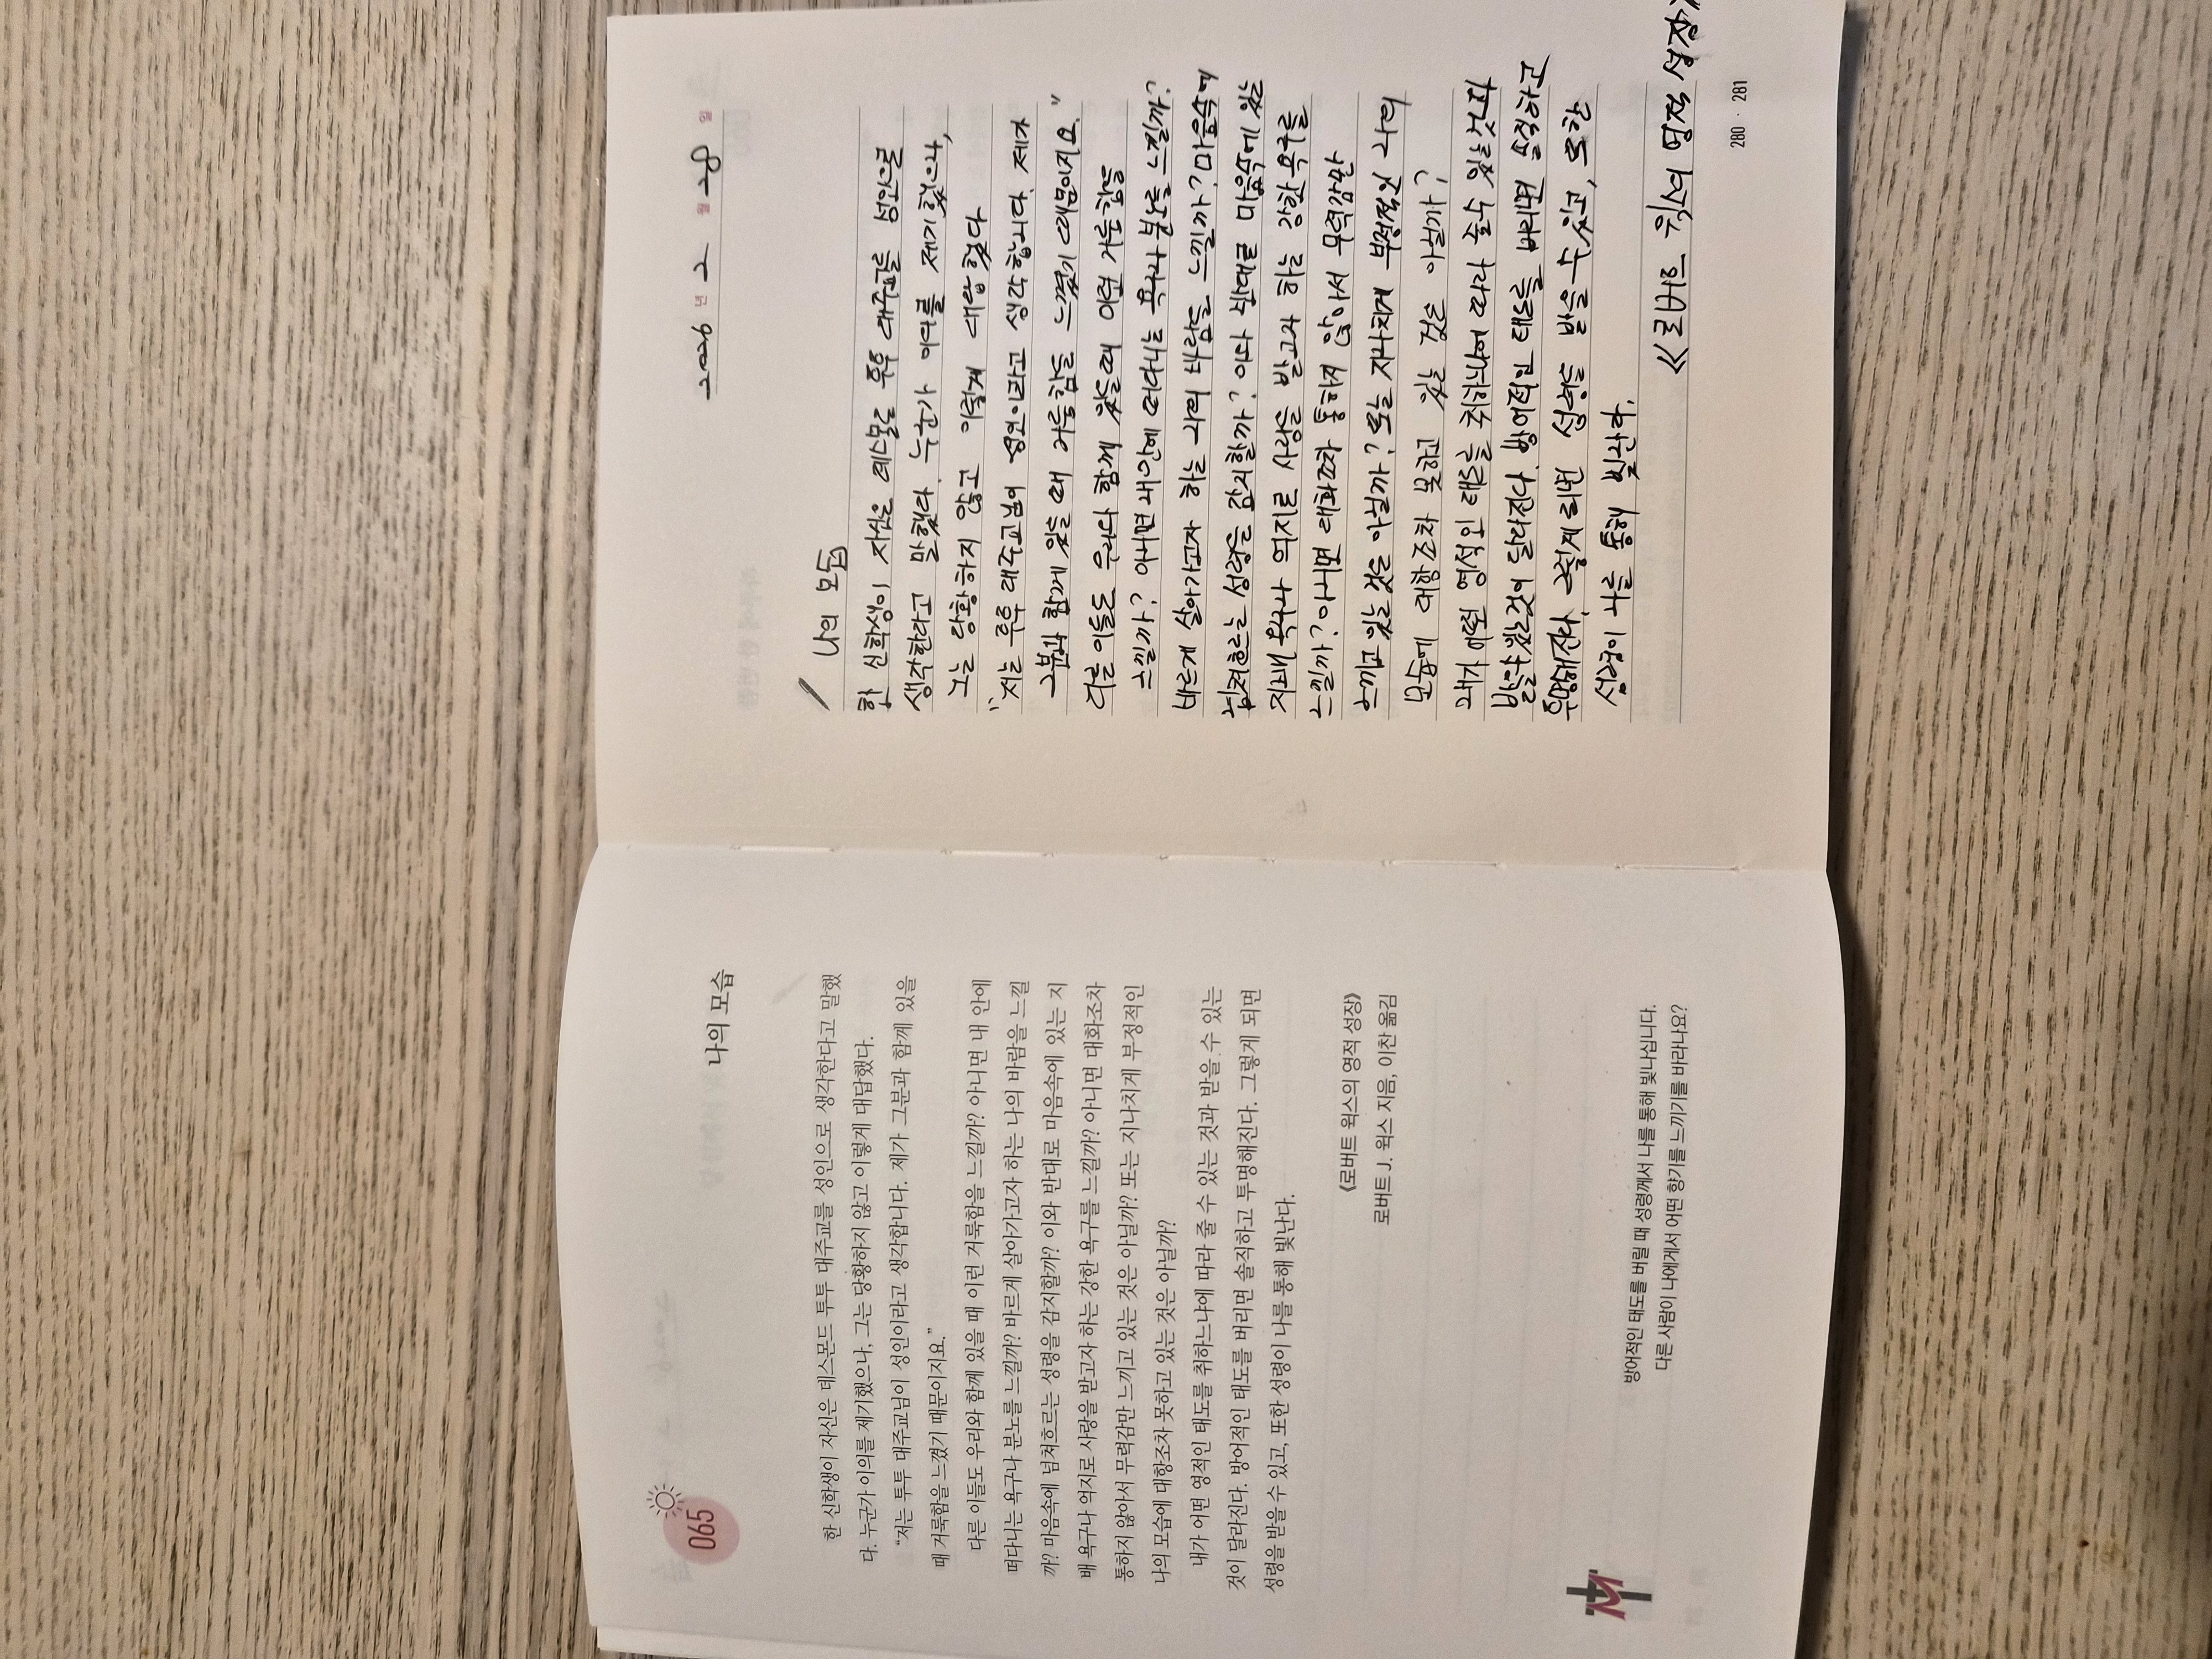 065
나의 모습
한 신학생이 자신은 데스몬드 투투 대주교를 성인으로 생각한다고 말했
다. 누군가 이의를 제기했으나, 그는 당황하지 않고 이렇게 대답했다.
“저는 투투 대주교님이 성인이라고 생각합니다. 제가 그분과 함께 있을
때 거룩함을 느꼈기 때문이지요.”
다른 이들도 우리와 함께 있을 때 이런 거룩함을 느낄까? 아니면 내 안에
떠다니는 욕구나 분노를 느낄까? 바르게 살아가고자 하는 나의 바람을 느낄
까? 마음속에 넘쳐흐르는 성령을 감지할까? 이와 반대로 마음속에 있는 지
배 욕구나 억지로 사랑을 받고자 하는 강한 욕구를 느낄까? 아니면 대화조차
통하지 않아서 무력감만 느끼고 있는 것은 아닐까? 또는 지나치게 부정적인
나의 모습에 대항조차 못하고 있는 것은 아닐까?
내가 어떤 영적인 태도를 취하느냐에 따라 줄 수 있는 것과 받을 수 있는
것이 달라진다. 방어적인 태도를 버리면 솔직하고 투명해진다. 그렇게 되면
성령을 받을 수 있고, 또한 성령이 나를 통해 빛난다.
《로버트 윅스의 영적 성장》
로버트 J. 윅스 지음, 이찬 옮김
방어적인 태도를 버릴 때 성령께서 나를 통해 빛나십니다.
다른 사람이 나에게서 어떤 향기를 느끼기를 바라나요?
2026 년 2 월 28 일
나의 모습
한 신학생이 자신은 데스몬드 투투 대주교를 성인으로
생각한다고 말했다. 누군가 이의를 제기했으나,
그는 당황하지 않고 이렇게 대답했다
“저는 투투 대주교님이 성인이라고 생각합니다. 제가
그분과 함께 있을 때 거룩함을 느꼈기 때문이지요.”
다른 이들도 우리와 함께 있을때 이런 거룩함을
느낄까? 아니면 내안에 떠다니는 욕구나 분노를 느낄까?
바르게 살아가고자 하는 나의 바람을 느낄까? 마음속에
넘쳐흐르는 성령을 감지할까? 이와 반대로 마음속에 있는
지배 욕구나 억지로 사랑을 받고자 하는 강한 욕구를
느낄까? 아니면 대화조차 통하지 않아서 무력감만
느끼고 있는 것은 아닐까? 또는 지나치게 부정적인 나의
모습에 대항조차 못하고 있는 것은 아닐까?
내가 어떤 영적인 태도를 취하느냐에 따라 줄수 있는것과
받을수있는것이 달라진다. 방어적인 태도를 버리면 솔직하고
투명해진다. 그렇게 되면 성령을 받을 수 있고, 또한
성령이 나를 통해 빛난다.
《로버트 윅스의 영적 성장》
280 · 281